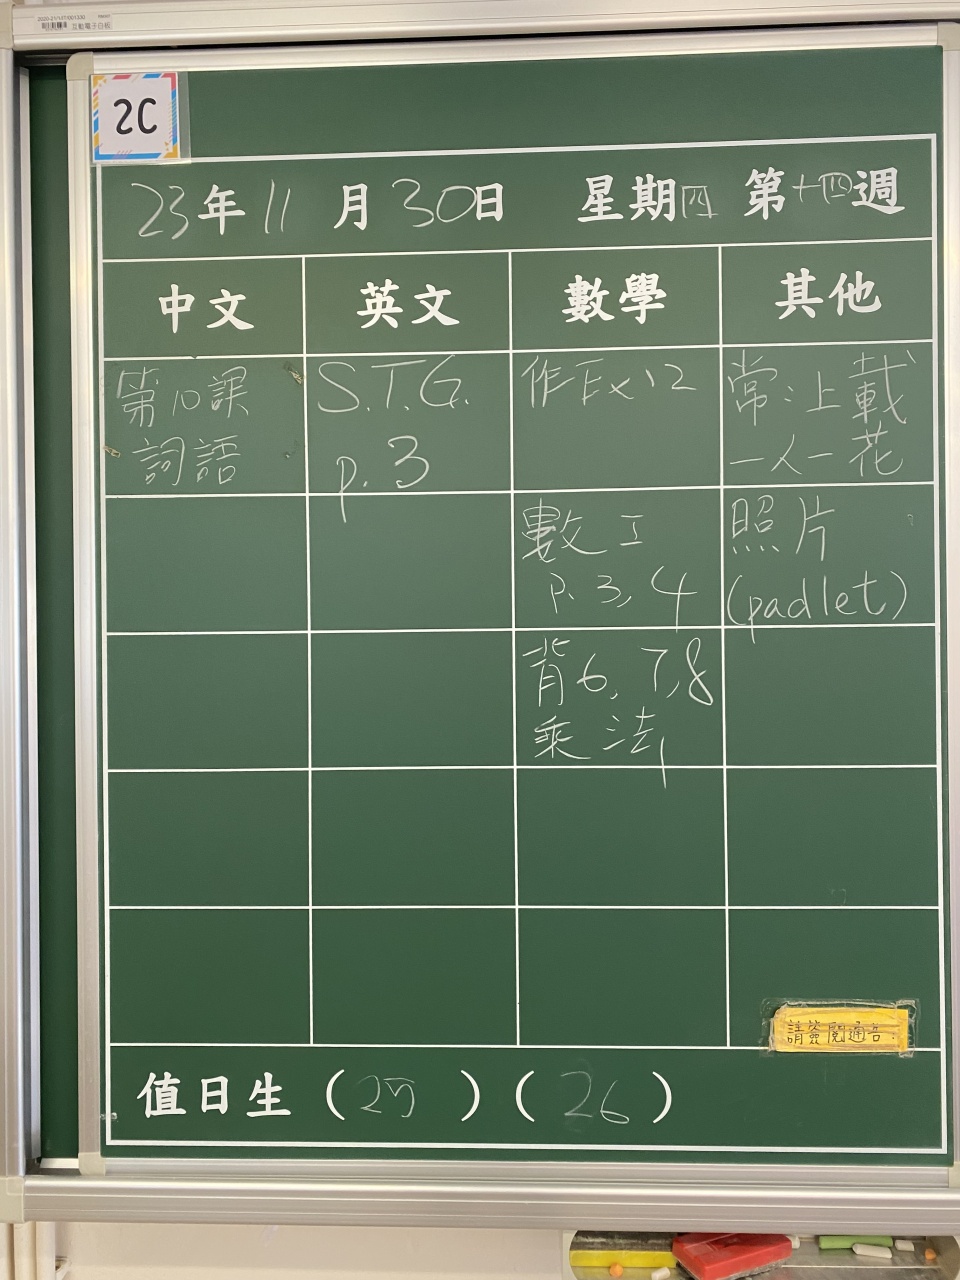 互動電子白板
2C
23年11月30日 星期四 第十四週
中文 英文 數學 其他
第10課
詞語
S.T.G.
p.3
作Ex12
常:上載
一人一花
數工
p.3,4
照片
(padlet)
背6,7,8
乘法
請簽閱通告.
值日生 (25) (26)